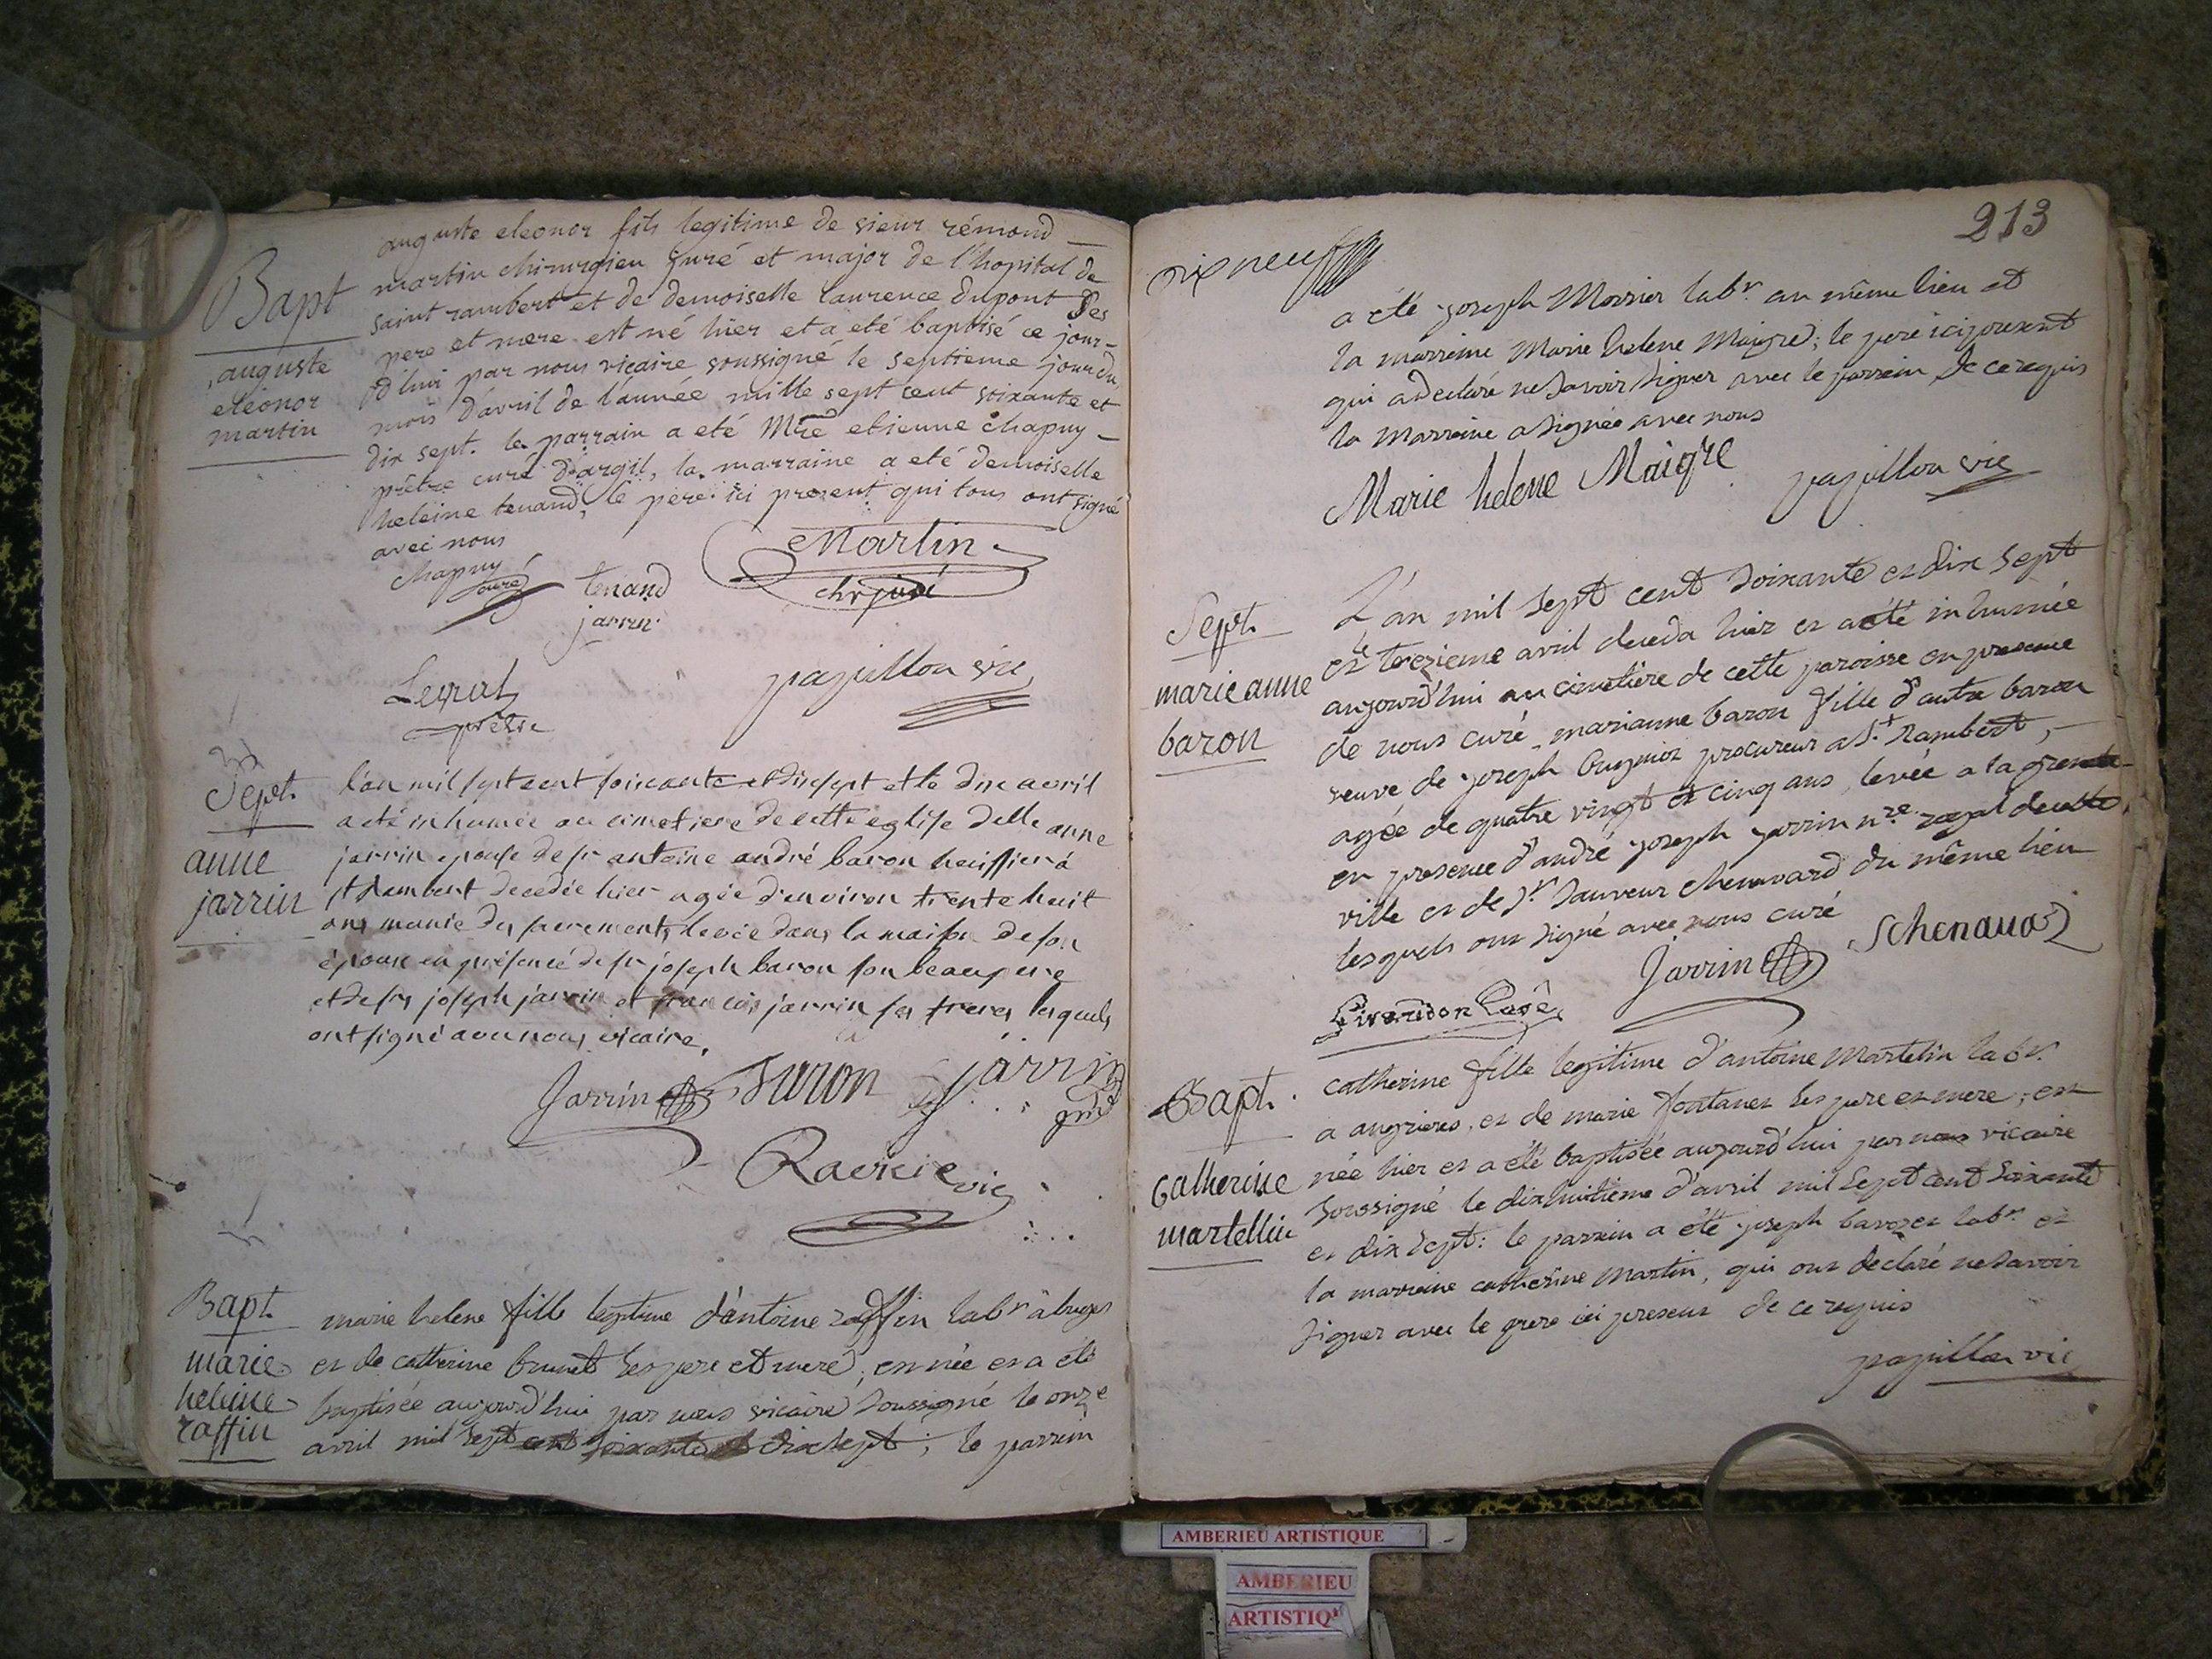 Bapt
auguste
eleonor
martin
auguste eleonor fils legitime de sieur rémond
martin chirurgien juré et major de l'hopital de
saint rambert et de demoiselle laurence dupont ses
pere et mere est né hier et a eté baptisé ce jour-
d'hui par nous vicaire soussigné le septieme jour du
mois d'avril de l'année mille sept cent soixante et
dix sept. le parrain a eté Mre etienne chapuy
prêtre curé d'argil, la marraine a eté demoiselle
heleine tenand, le pere ici present qui tous ont signé
avec nous
chapuy
curé
tenand
jarrin
Martin
chr juré
prêtre
papillon vic
Sept.
anne
jarrin
l'an mil sept cent soixante et dixsept et le dix avril
a eté inhumée au cimetiere de cette eglise delle anne
jarrin epouse de sr antoine andré baron huissier à
st Rambert decedée hier agée d'environ trente huit
ans munie des sacrements levée dans la maison de son
époux en présence de sr joseph baron son beaupere
et de srs joseph jarrin et francois jarrin ses freres lesquels
ont signé avec nous vicaire.
Jarrin
jarrin
vic
Bapt.
marie
heleine
raffin
marie helene fille legitime d'antoine raffin labr à
et de catherine brunet ses pere et mere, est née et a eté
baptisée aujourd'hui par nous vicaire soussigné le onze
avril mil sept cent soixante et dix sept; le parrain
213
dix neuf
a été joseph labr au même lieu et
la marreine Marie helene Maigre; le pere ici present
qui a declaré ne savoir signer avec le parrein de ce requis
la marreine a signée avec nous
Marie helene Maigre
papillon vic
Sept.
marie anne
baron
L'an mil sept cent soixante et dix sept
et le trezieme avril deceda hier et a été inhumée
aujourd'hui au cimetière de cette paroisse en presence
de nous curé, marianne baron fille d'autre baron
veuve de joseph procureur a St Rambert,
agée de quatre vingt et cinq ans, levée a la
en presence d'andré joseph jarrin nre royal de cette
ville et de Sr Sauveur chenavard du même lieu
lesquels ont signé avec nous curé
Jarrin
Bapt.
Catherine
martellin
catherine fille legitime d'antoine Martelin labr
a angrieres, et de marie fontanet ses pere et mere, est
née hier et a été baptisée aujourd'hui par nous vicaire
soussigné le dixhuitieme d'avril mil sept cent soixante
et dix sept: le parrein a été joseph labr et
la marreine catherine Martin, qui ont declaré ne savoir
signer avec le pere ici present de ce requis
papillon vic
AMBERIEU ARTISTIQUE
AMBERIEU
ARTISTIQ